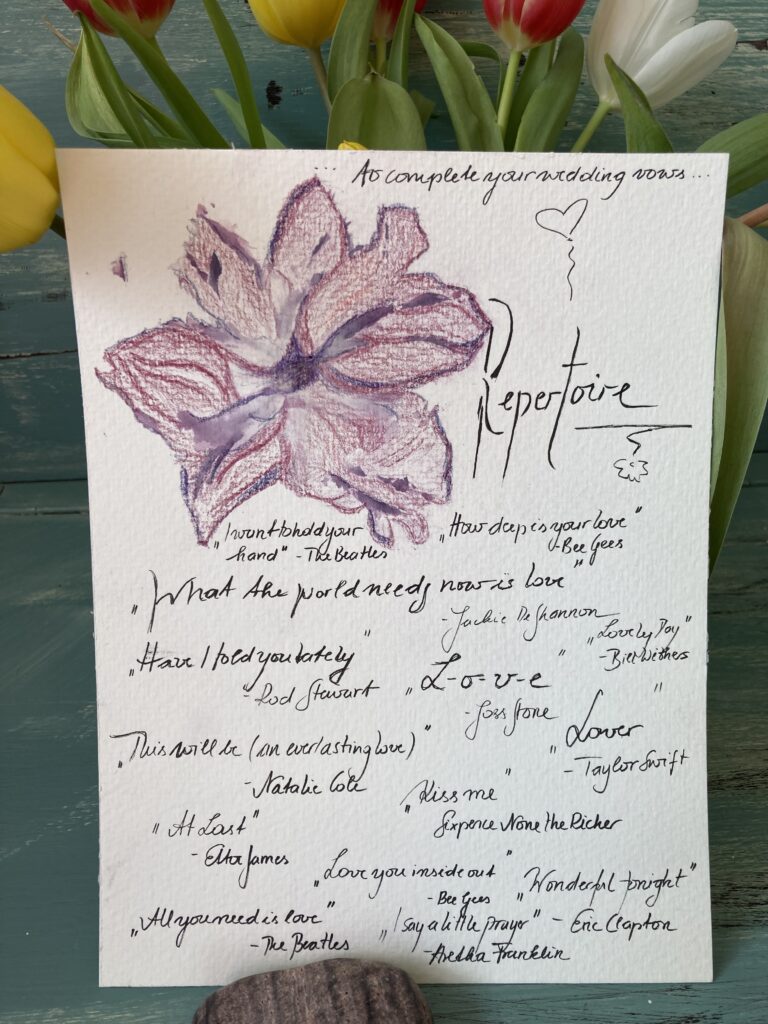 ... to complete your wedding vows...
Repertoire
„I want to hold your
hand" - The Beatles
„How deep is your love"
- Bee Gees
„What the world needs now is love"
- Jackie DeShannon
„Lovely Day"
- Bill Withers
„Have I told you lately"
- Rod Stewart
„L-o-v-e"
- Joss Stone
„Lover"
- Taylor Swift
„This will be (an everlasting love)"
- Natalie Cole
„Kiss me"
Sixpence None the Richer
"At Last"
- Etta James
„Love you inside out"
- Bee Gees
„Wonderful tonight"
- Eric Clapton
„All you need is love"
- The Beatles
„I say a little prayer"
- Aretha Franklin